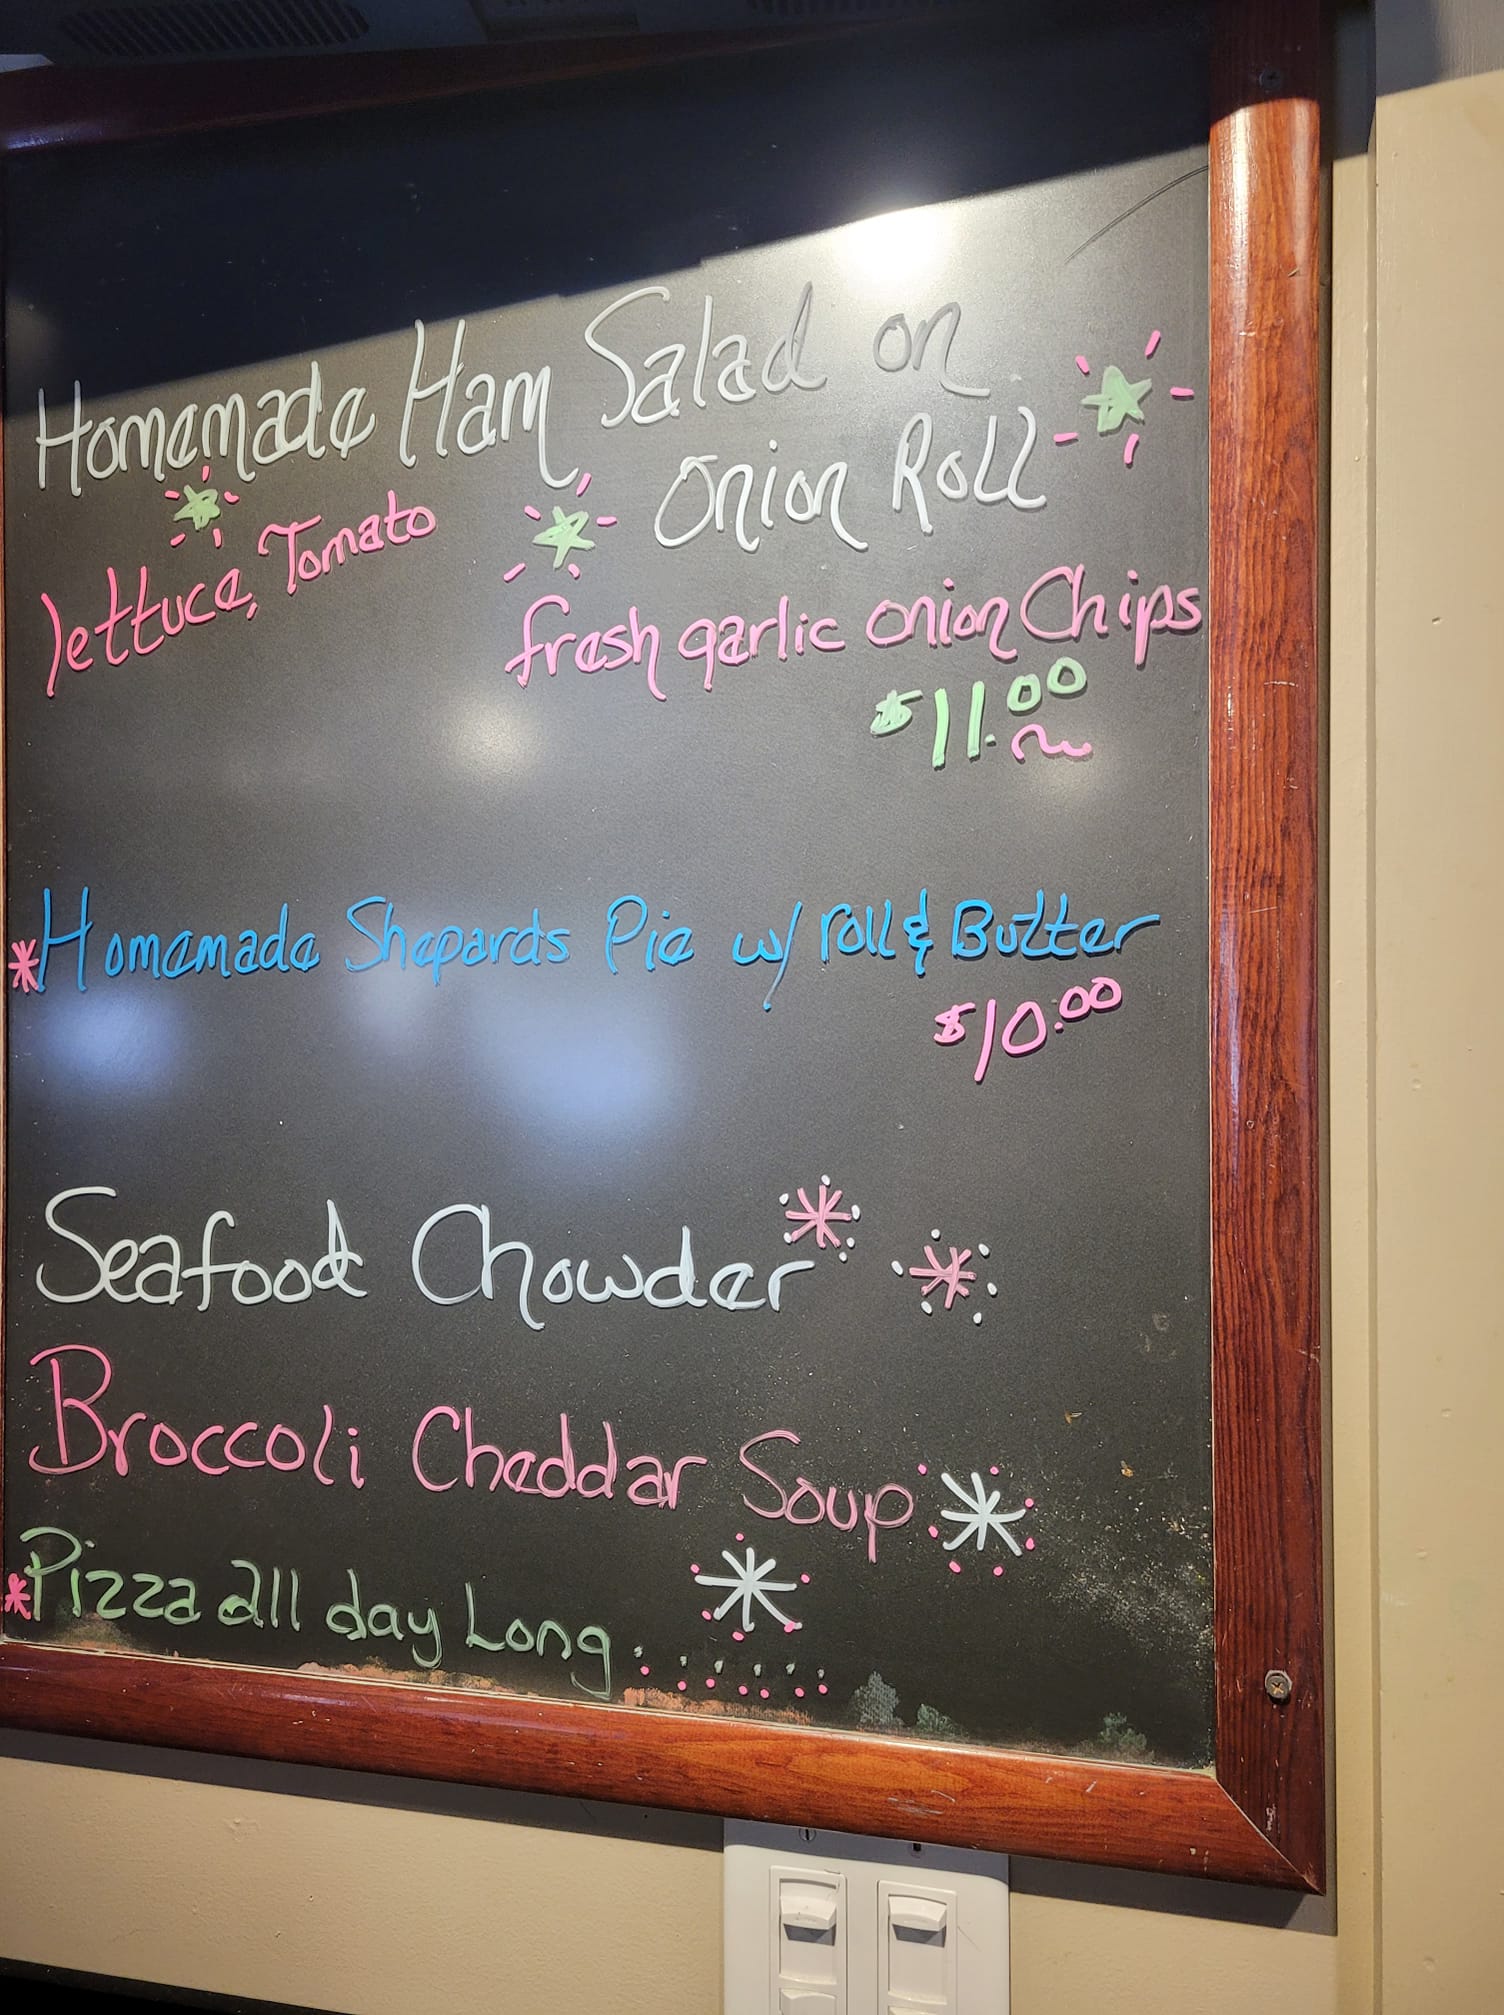 Homemade Ham Salad on
Onion Roll
lettuce, Tomato
fresh garlic onion Chips
$11.00
Homemade Shepards Pie w/ roll & Butter
$10.00
Seafood Chowder
Broccoli Cheddar Soup
Pizza all day Long......